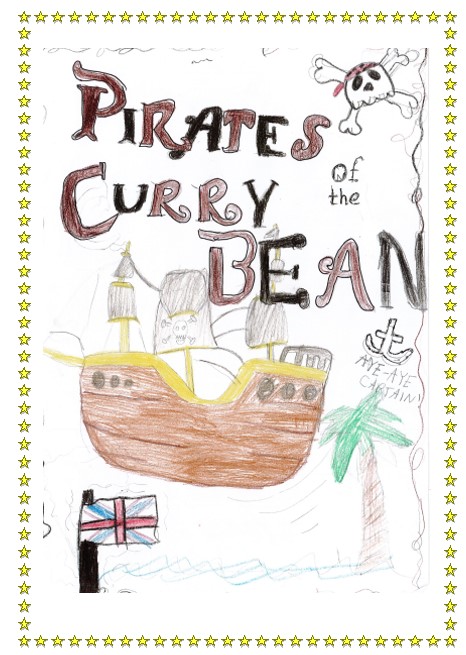 PIRATES
of
the
CURRY
BEAN
AYE-AYE
CAPTAIN!